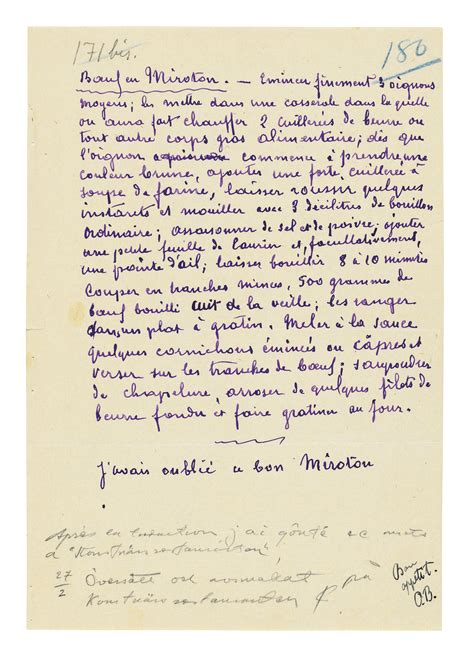 171 bis.
186
Bœuf en Miroton. — Emincer finement 3 oignons
moyens; les mettre dans une casserole dans laquelle
on aura fait chauffer 2 cuillerées de beurre ou
tout autre corps gras alimentaire; dès que
l'oignon commence à prendre une
couleur brune, ajoutez une forte cuillerée à
soupe de farine, laisser roussir quelques
instants et mouiller avec 3 décilitres de bouillon
ordinaire; assaisonner de sel et de poivre, ajouter
une petite feuille de laurier et, facultativement,
une pointe d'ail; laisser bouillir 8 à 10 minutes
Couper en tranches minces, 500 grammes de
bœuf bouilli cuit de la veille; les ranger
dans un plat à gratin. Meler à la sauce
quelques cornichons émincés ou câpres et
verser sur les tranches de bœuf; saupoudrer
de chapelure, arroser de quelques filets de
beurre fondu et faire gratiner au four.
J'avais oublié ce bon Miroton
Après j'ai goûté ce
à "
27/2
på
Bon
appétit.
O.B.